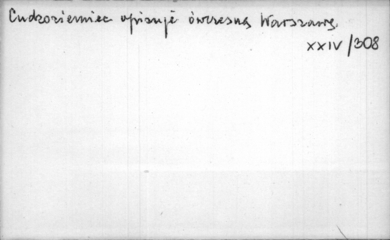 Cudzoziemiec opisuje ówczesną Warszawę
XXIV/308